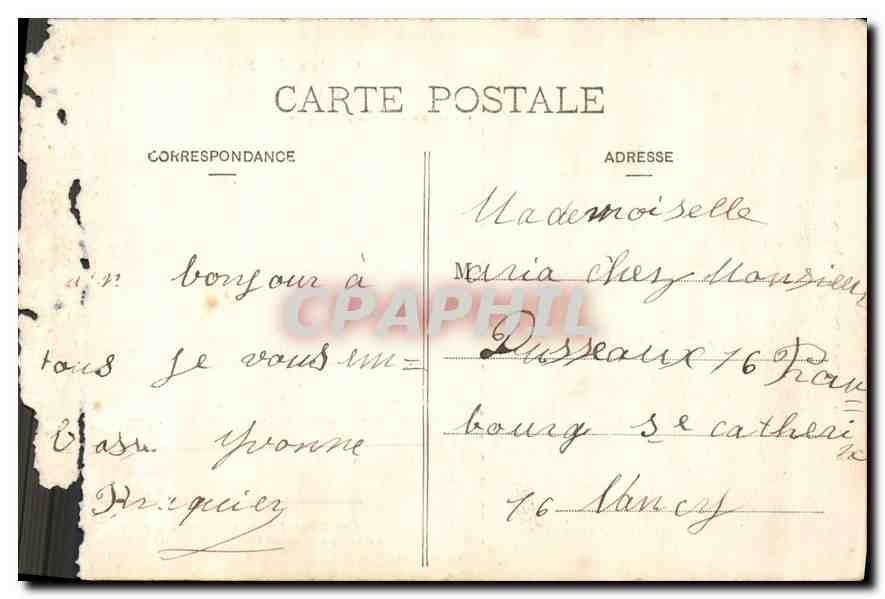 CARTE POSTALE
CORRESPONDANCE
bonjour à
tous Je vous em=
Yvonne
ADRESSE
Mademoiselle
Maria Chez Monsieur
Dusseaux 16 Frau=
bourg Ste catheri
ne
16 Nancy
CPAPHIL